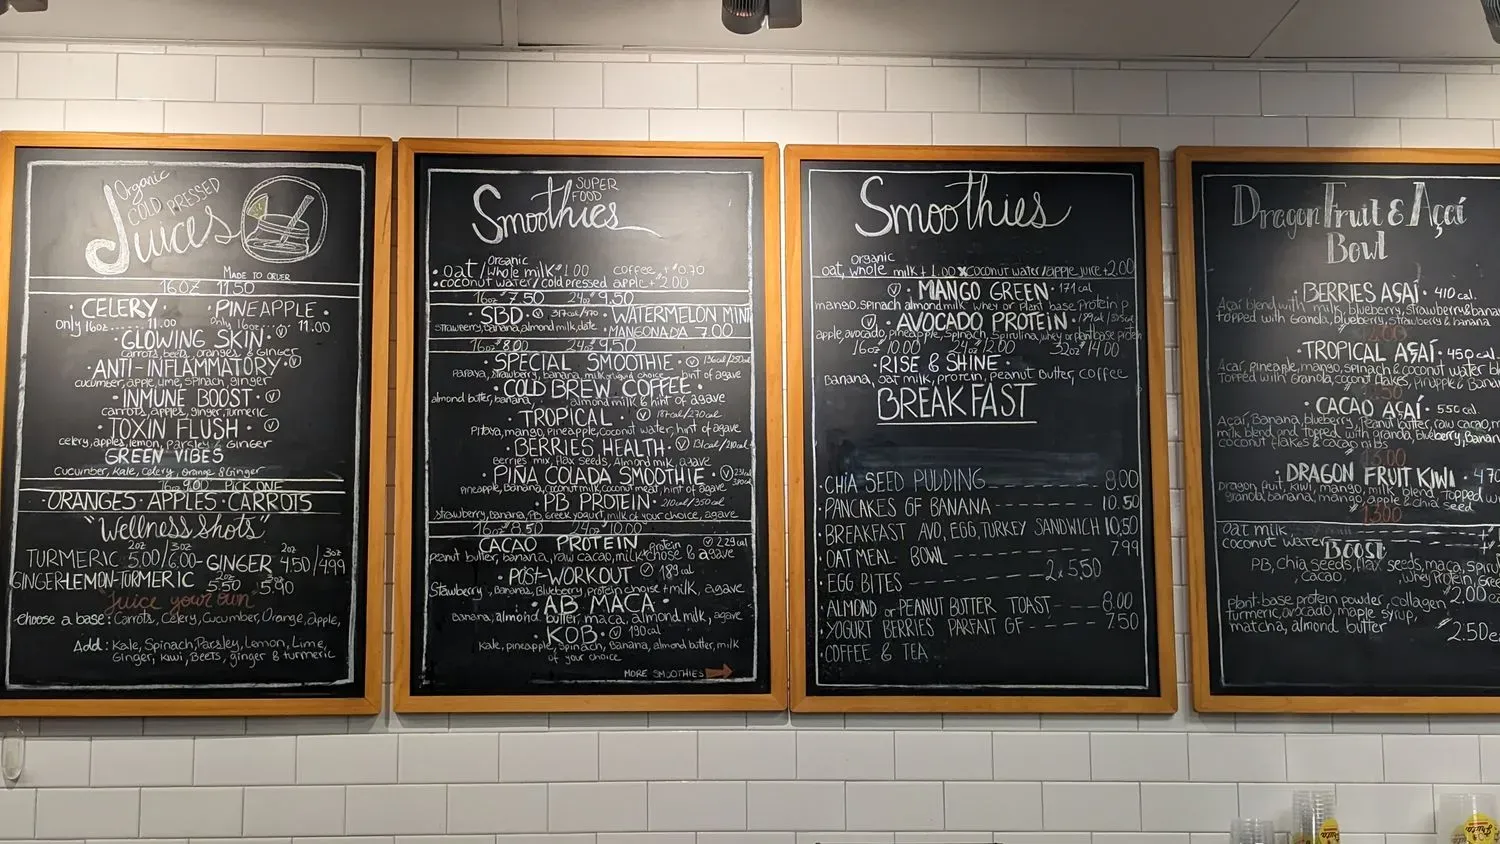 Organic
COLD PRESSED
Juices
MADE TO ORDER
16oz 11.50
· CELERY · PINEAPPLE ·
only 16oz ........ 11.00 only 16oz · 11.00
· GLOWING SKIN · V
carrots, beets, oranges & GINGER
· ANTI-INFLAMMATORY · V
cucumber, apple, lime, spinach, ginger
· INMUNE BOOST · V
carrots, apples, ginger, turmeric
· TOXIN FLUSH · V
celery, apples, lemon, Parsley & GINGER
GREEN VIBES
Cucumber, Kale, Celery, Orange & Ginger
16oz 9.00 PICK ONE
· ORANGES · APPLES · CARROTS
"Wellness Shots"
2oz 3oz 2oz 3oz
TURMERIC 5.00/6.00 - GINGER 4.50/4.99
GINGER-LEMON-TURMERIC 5.50 5.90
"Juice your own"
choose a base: Carrots, Celery, Cucumber, Orange, apple,
Add: Kale, Spinach, Parsley, Lemon, Lime,
Ginger, Kiwi, Beets, ginger & turmeric
SUPER
FOOD
Smoothies
Organic
· oat/whole milk $1.00 coffee + $0.70
· coconut water/cold pressed apple + 2.00
16oz $7.50 24oz $9.50
· SBD · V WATERMELON MINT
strawberry, banana, almond milk, date · MANGONADA 7.00
16oz $8.00 24oz $9.50
· SPECIAL SMOOTHIE · V
Papaya, strawberry, banana, hint of agave
· COLD BREW COFFEE ·
almond butter, banana, almond milk & hint of agave
· TROPICAL · V 187cal/270cal
Pitaya, mango, Pineapple, Coconut water, hint of agave
· BERRIES HEALTH · V
Berries mix, flax seeds, Almond milk, agave
· PIÑA COLADA SMOOTHIE · V
Pineapple, Banana, coconut milk, coconut meat, hint of agave
· PB PROTEIN ·
strawberry, banana, PB, Greek yogurt, milk of your choice, agave
16oz $8.50 24oz $10.00
CACAO PROTEIN V 229cal
peanut butter, banana, raw cacao, milk chose & agave
· POST-WORKOUT V 189cal
Stawberry, Bananas, Blueberry, protein choise + milk, agave
· AB MACA ·
Banana, almond butter, maca, almond milk, agave
· KOB · V 190cal
Kale, pineapple, spinach, Banana, almond butter, milk
of your choice
MORE SMOOTHIES
Smoothies
Organic
oat, whole milk + 1.00 x coconut water/apple juice + 2.00
V · MANGO GREEN · 171 cal
mango, spinach almond milk whey or plant base Protein P
V · AVOCADO PROTEIN ·
apple, avocado, pineapple, Spinach, Spirulina, whey or plant base protein
16oz 10.00 24oz 12.00 32oz 14.00
· RISE & SHINE ·
Banana, oat milk, protein, Peanut Butter, coffee
BREAKFAST
· CHIA SEED PUDDING ---------- 8.00
· PANCAKES GF BANANA ---------- 10.50
· BREAKFAST AVO, EGG, TURKEY SANDWICH 10.50
· OATMEAL BOWL ---------- 7.99
· EGG BITES ---------- 2x5.50
· ALMOND or PEANUT BUTTER TOAST ---- 8.00
· YOGURT BERRIES PARFAIT GF ---- 7.50
· COFFEE & TEA
Dragon Fruit & Açaí
Bowl
· BERRIES AÇAÍ · 410 cal.
Açaí blend with milk, blueberry, strawberry & bana
topped with Granola, blueberry, strawberry & banana
· TROPICAL AÇAÍ · 450 cal.
Açaí, pineapple, mango, spinach & coconut water bl
Topped with Granola, coconut flakes, Pineapple & Bana
· CACAO AÇAÍ · 550 cal.
Açaí, Banana, blueberry, Peanut butter, raw cacao, m
milk blend and topped with granola, blueberry, Banan
coconut flakes & cacao nibs
13.00
· DRAGON FRUIT KIWI · 470
Dragon fruit, kiwi, mango, milk blend, topped w
granola, banana, mango, apple & chia seed
13.00
oat milk
coconut water
Boost
PB, Chia seeds, flax seeds, maca, Spirul
, Cacao, whey Protein, Gree
2.00 ea
plant base protein powder, collagen
turmeric, avocado, maple syrup,
matcha, almond butter 2.50 e